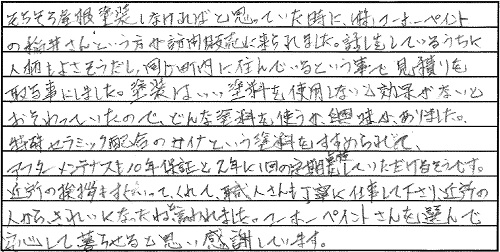 そろそろ屋根塗装しなければと思っていた時に、(株)コーホーペイント
の桜井さんという方が訪問販売に来られました。話をしているうちに
人柄もよさそうだし、同じ町内に住んでいるという事で見積りを
取る事にしました。塗装はいい塗料を使用しないと効果がないと
おそわっていたので、どんな塗料を使うか、興味がありました。
特殊セラミック配合のガイナという塗料をすすめられて、
アフターメンテナスも10年保証と2年に1回の定期点検していただけるそうです。
近所の挨拶もすだいって、くれて、職人さんも丁寧に仕事して下さり近所の
人から、きれいになったね、言われました。コーホーペイントさんを選んで
安心して暮らせると思い感謝しています。